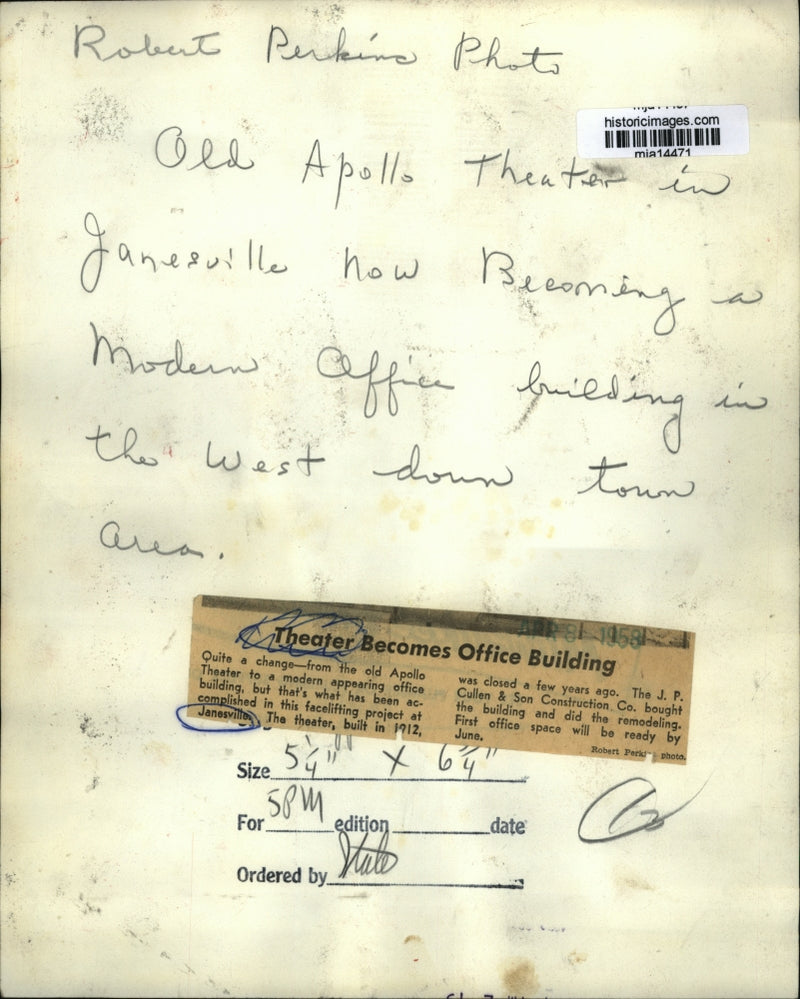 Robert Perkins Photo
historicimages.com
mja14471
Old Apollo Theater in
Janesville now Becoming a
Modern Office building in
the West down town
area.
APR 8 1958
Theater Becomes Office Building
Quite a change—from the old Apollo
Theater to a modern appearing office
building, but that's what has been ac-
complished in this facelifting project at
Janesville. The theater, built in 1912,
was closed a few years ago. The J. P.
Cullen & Son Construction Co. bought
the building and did the remodeling.
First office space will be ready by
June.
Robert Perkins photo.
Size 5 1/4" X 6 3/4"
For 5PM edition date
Ordered by State